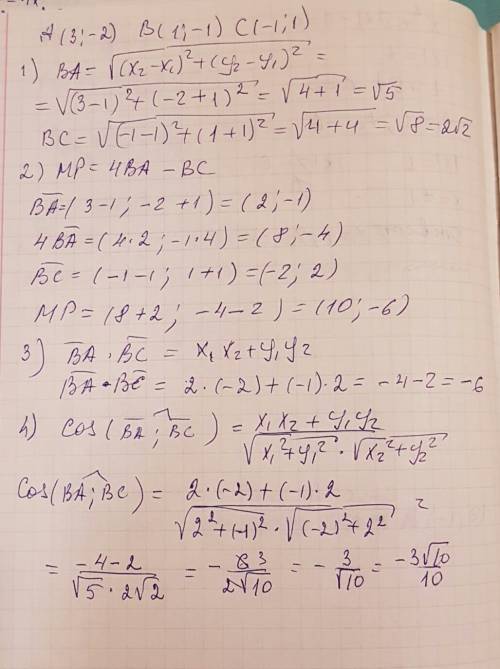 A(3;-2) B(1;-1) C(-1;1)
1) BA = √((x₂-x₁)²+(y₂-y₁)²) =
= √((3-1)²+(-2+1)²) = √(4+1) = √5
BC = √((-1-1)²+(1+1)²) = √(4+4) = √8 = 2√2
2) MP = 4BA - BC
B̅A̅ = (3-1; -2+1) = (2;-1)
4B̅A̅ = (4·2; -1·4) = (8;-4)
B̅C̅ = (-1-1; 1+1) = (-2; 2)
MP = (8+2; -4-2) = (10;-6)
3) B̅A̅ · B̅C̅ = x₁x₂+y₁y₂
B̅A̅ · B̅C̅ = 2·(-2)+(-1)·2 = -4-2 = -6
4) cos(B̅A̅; B̅C̅) = (x₁x₂+y₁y₂)/(√(x₁²+y₁²) · √(x₂²+y₂²))
cos(BA; BC) = (2·(-2)+(-1)·2)/(√(2²+(-1)²) · √((-2)²+2²)) =
= (-4-2)/(√5·2√2) = -6 3/(2√10) = -3/√10 = -3√10/10